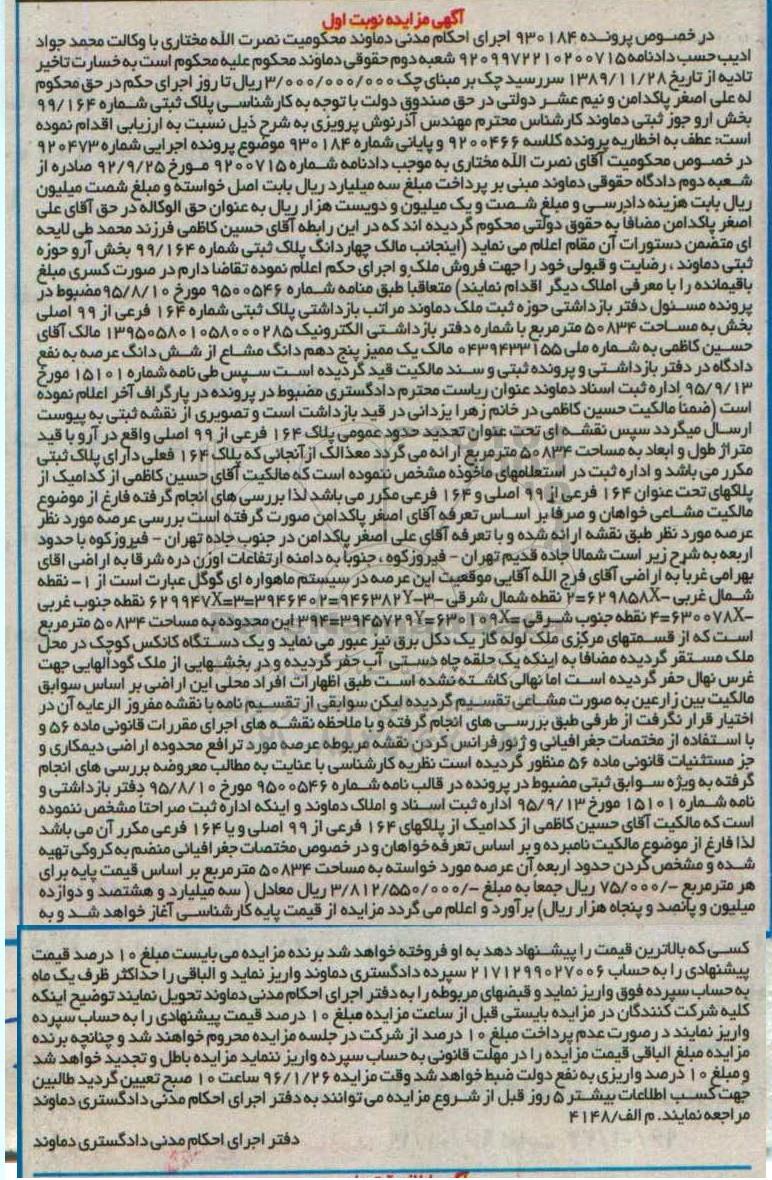 آگهی مزایده نوبت اول
در خصوص پرونده ۹۳۰۱۸۴ اجرای احکام مدنی دماوند محکومیت نصرت الله مختاری با وکالت محمد جواد
ادیب حسب دادنامه ۹۲۰۹۹۷۲۲۱۰۲۰۰۷۱۵ شعبه دوم حقوقی دماوند محکوم علیه محکوم است به خسارت تاخیر
تادیه از تاریخ ۱۳۸۹/۱۱/۲۸ سررسید چک بر مبنای چک ۳/۰۰۰/۰۰۰/۰۰۰ ریال تا روز اجرای حکم در حق محکوم
له علی اصغر پاکدامن و نیم عشر دولتی در حق صندوق دولت با توجه به کارشناسی پلاک ثبتی شماره ۹۹/۱۶۴
بخش ارو جوز ثبتی دماوند کارشناس محترم مهندس آذرنوش پرویزی به شرح ذیل نسبت به ارزیابی اقدام نموده
است: عطف به اخطاریه پرونده کلاسه ۹۲۰۰۴۶۶ و پایانی شماره ۹۳۰۱۸۴ موضوع پرونده اجرایی شماره ۹۲۰۴۷۳
در خصوص محکومیت آقای نصرت الله مختاری به موجب دادنامه شماره ۹۲۰۰۷۱۵ مورخ ۹۲/۹/۲۵ صادره از
شعبه دوم دادگاه حقوقی دماوند مبنی بر پرداخت مبلغ سه میلیارد ریال بابت اصل خواسته و مبلغ شصت میلیون
ریال بابت هزینه دادرسی و مبلغ شصت و یک میلیون و دویست هزار ریال به عنوان حق الوکاله در حق آقای علی
اصغر پاکدامن مضافا به حقوق دولتی محکوم گردیده اند که در این رابطه آقای حسین کاظمی فرزند محمد طی لایحه
ای متضمن دستورات آن مقام اعلام می نماید (اینجانب مالک چهاردانگ پلاک ثبتی شماره ۹۹/۱۶۴ بخش آرو حوزه
ثبتی دماوند ، رضایت و قبولی خود را جهت فروش ملک و اجرای حکم اعلام نموده تقاضا دارم در صورت کسری مبلغ
باقیمانده را با معرفی املاک دیگر اقدام نمایند) متعاقبا طبق منامه شماره ۹۵۰۰۵۴۶ مورخ ۹۵/۸/۱۰ مضبوط در
پرونده مسئول دفتر بازداشتی حوزه ثبت ملک دماوند مراتب بازداشتی پلاک ثبتی شماره ۱۶۴ فرعی از ۹۹ اصلی
بخش به مساحت ۵۰۸۳۴ مترمربع با شماره دفتر بازداشتی الکترونیک ۱۳۹۵۰۵۸۰۱۰۵۸۰۰۰۲۸۵ مالک آقای
حسین کاظمی به شماره ملی ۰۴۳۹۴۳۳۱۵۵ مالک یک ممیز پنج دهم دانگ مشاع از شش دانگ عرصه به نفع
دادگاه در دفتر بازداشتی و پرونده ثبتی و سند مالکیت قید گردیده است سپس طی نامه شماره ۱۵۱۰۱ مورخ
۹۵/۹/۱۳ اداره ثبت اسناد دماوند عنوان ریاست محترم دادگستری مضبوط در پرونده در پارگراف آخر اعلام نموده
است (ضمنا مالکیت حسین کاظمی در خانم زهرا یزدانی در قید بازداشت است و تصویری از نقشه ثبتی به پیوست
ارسال میگردد سپس نقشه ای تحت عنوان تحدید حدود عمومی پلاک ۱۶۴ فرعی از ۹۹ اصلی واقع در آرو با قید
متراژ طول و ابعاد به مساحت ۵۰۸۳۴ مترمربع ارائه می گردد معذالک ازآنجائی که پلاک ۱۶۴ فعلی دارای پلاک ثبتی
مکرر می باشد و اداره ثبت در استعلامهای ماخوذه مشخص ننموده است که مالکیت آقای حسین کاظمی از کدامیک از
پلاکهای تحت عنوان ۱۶۴ فرعی از ۹۹ اصلی و ۱۶۴ فرعی مکرر می باشد لذا بررسی های انجام گرفته فارغ از موضوع
مالکیت مشاعی خواهان و صرفا بر اساس تعرفه آقای اصغر پاکدامن صورت گرفته است بررسی عرصه مورد نظر
عرصه مورد نظر طبق نقشه ارائه شده و با تعرفه آقای علی اصغر پاکدامن در جنوب جاده تهران – فیروزکوه با حدود
اربعه به شرح زیر است شمالا جاده قدیم تهران – فیروزکوه ، جنوبا به دامنه ارتفاعات اوزن دره شرقا به اراضی اقای
بهرامی غربا به اراضی آقای فرج الله آقایی موقعیت این عرصه در سیستم ماهواره ای گوگل عبارت است از ۱- نقطه
شمال غربی -۶۲۹۸۵۸X=۲ نقطه شمال شرقی -۳-۹۴۶۳۸۲Y=۳۹۴۶۴۰۲=۳=۶۲۹۹۴۷X نقطه جنوب غربی
-۶۳۰۰۷۸X=۴ نقطه جنوب شرقی =۶۳۰۱۰۹X=۳۹۴۵۷۲۹Y=۳۹۴ این محدوده به مساحت ۵۰۸۳۴ مترمربع
است که از قسمتهای مرکزی ملک لوله گاز یک دکل برق نیز عبور می نماید و یک دستگاه کانکس کوچک در محل
ملک مستقر گردیده مضافا به اینکه یک حلقه چاه دستی آب حفر گردیده و در بخشهایی از ملک گودالهایی جهت
غرس نهال حفر گردیده است اما نهالی کاشته نشده است طبق اظهارات افراد محلی این اراضی بر اساس سوابق
مالکیت بین زارعین به صورت مشاعی تقسیم گردیده لیکن سوابقی از تقسیم نامه با نقشه مفروز الرعایه آن در
اختیار قرار نگرفت از طرفی طبق بررسی های انجام گرفته و با ملاحظه نقشه های اجرای مقررات قانونی ماده ۵۶ و
با استفاده از مختصات جغرافیائی و ژئورفرانس کردن نقشه مربوطه عرصه مورد ترافع محدوده اراضی دیمکاری و
جز مستثنیات قانونی ماده ۵۶ منظور گردیده است نظریه کارشناسی با عنایت به مطالب معروضه بررسی های انجام
گرفته به ویژه سوابق ثبتی مضبوط در پرونده در قالب نامه شماره ۹۵۰۰۵۴۶ مورخ ۹۵/۸/۱۰ دفتر بازداشتی و
نامه شماره ۱۵۱۰۱ مورخ ۹۵/۹/۱۳ اداره ثبت اسناد و املاک دماوند و اینکه اداره ثبت صراحتا مشخص ننموده
است که مالکیت آقای حسین کاظمی از کدامیک از پلاکهای ۱۶۴ فرعی از ۹۹ اصلی و یا ۱۶۴ فرعی مکرر آن می باشد
لذا فارغ از موضوع مالکیت نامبرده و بر اساس تعرفه خواهان و در خصوص مختصات جغرافیائی منضم به کروکی تهیه
شده و مشخص کردن حدود اربعه آن عرصه مورد خواسته به مساحت ۵۰۸۳۴ مترمربع بر اساس قیمت پایه برای
هر مترمربع -/۷۵/۰۰۰ ریال جمعا به مبلغ -/۳/۸۱۲/۵۵۰/۰۰۰ ریال معادل ( سه میلیارد و هشتصد و دوازده
میلیون و پانصد و پنجاه هزار ریال) برآورد و اعلام می گردد مزایده از قیمت پایه کارشناسی آغاز خواهد شد و به
کسی که بالاترین قیمت را پیشنهاد دهد به او فروخته خواهد شد برنده مزایده می بایست مبلغ ۱۰ درصد قیمت
پیشنهادی را به حساب ۲۱۷۱۲۹۹۰۲۷۰۰۶ سپرده دادگستری دماوند واریز نماید و الباقی را حداکثر ظرف یک ماه
به حساب سپرده فوق واریز نماید و قبضهای مربوطه را به دفتر اجرای احکام مدنی دماوند تحویل نمایند توضیح اینکه
کلیه شرکت کنندگان در مزایده بایستی قبل از ساعت مزایده مبلغ ۱۰ درصد قیمت پیشنهادی را به حساب سپرده
واریز نمایند درصورت عدم پرداخت مبلغ ۱۰ درصد از شرکت در جلسه مزایده محروم خواهند شد و چنانچه برنده
مزایده مبلغ الباقی قیمت مزایده را در مهلت قانونی به حساب سپرده واریز ننماید مزایده باطل و تجدید خواهد شد
و مبلغ ۱۰ درصد واریزی به نفع دولت ضبط خواهد شد وقت مزایده ۹۶/۱/۲۶ ساعت ۱۰ صبح تعیین گردید طالبین
جهت کسب اطلاعات بیشتر ۵ روز قبل از شروع مزایده می توانند به دفتر اجرای احکام مدنی دادگستری دماوند
مراجعه نمایند. م الف/۴۱۴۸
دفتر اجرای احکام مدنی دادگستری دماوند